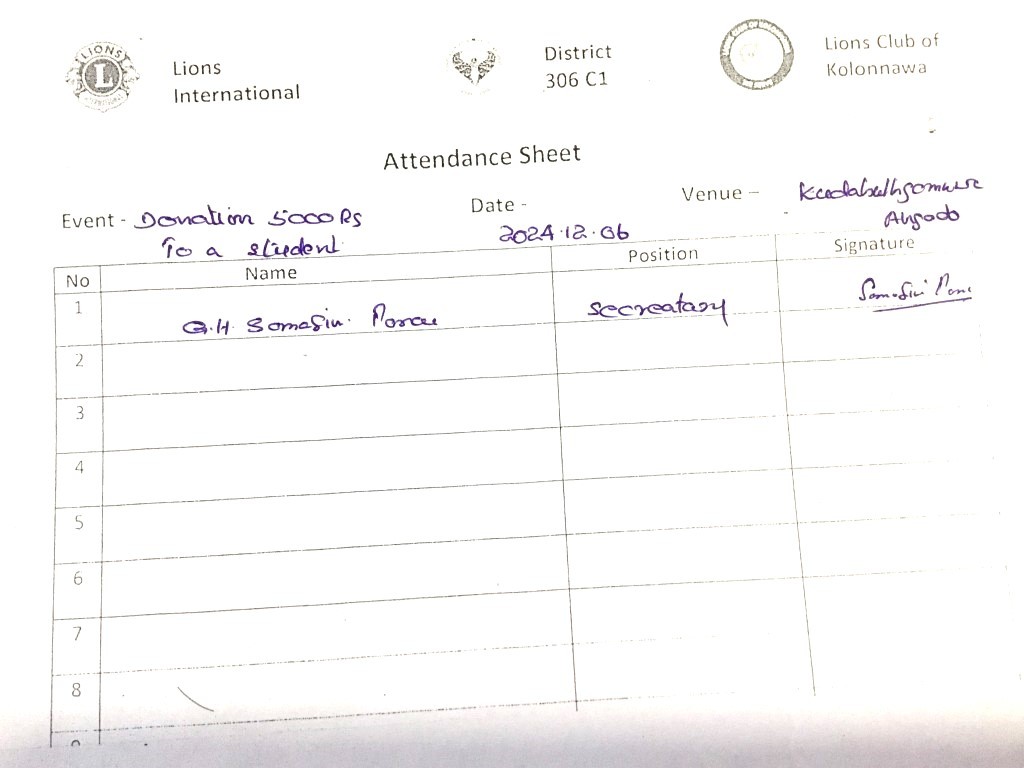 LIONS
L
INTERNATIONAL
Lions
International
District
306 C1
Lions Club of
Kolonnawa
Attendance Sheet
Event - Donation 5000 Rs
To a student
Date -
2024.12.06
Venue -
No
Name
Position
Signature
1
G.H. Somasiri
secreatary
2
3
4
5
6
7
8